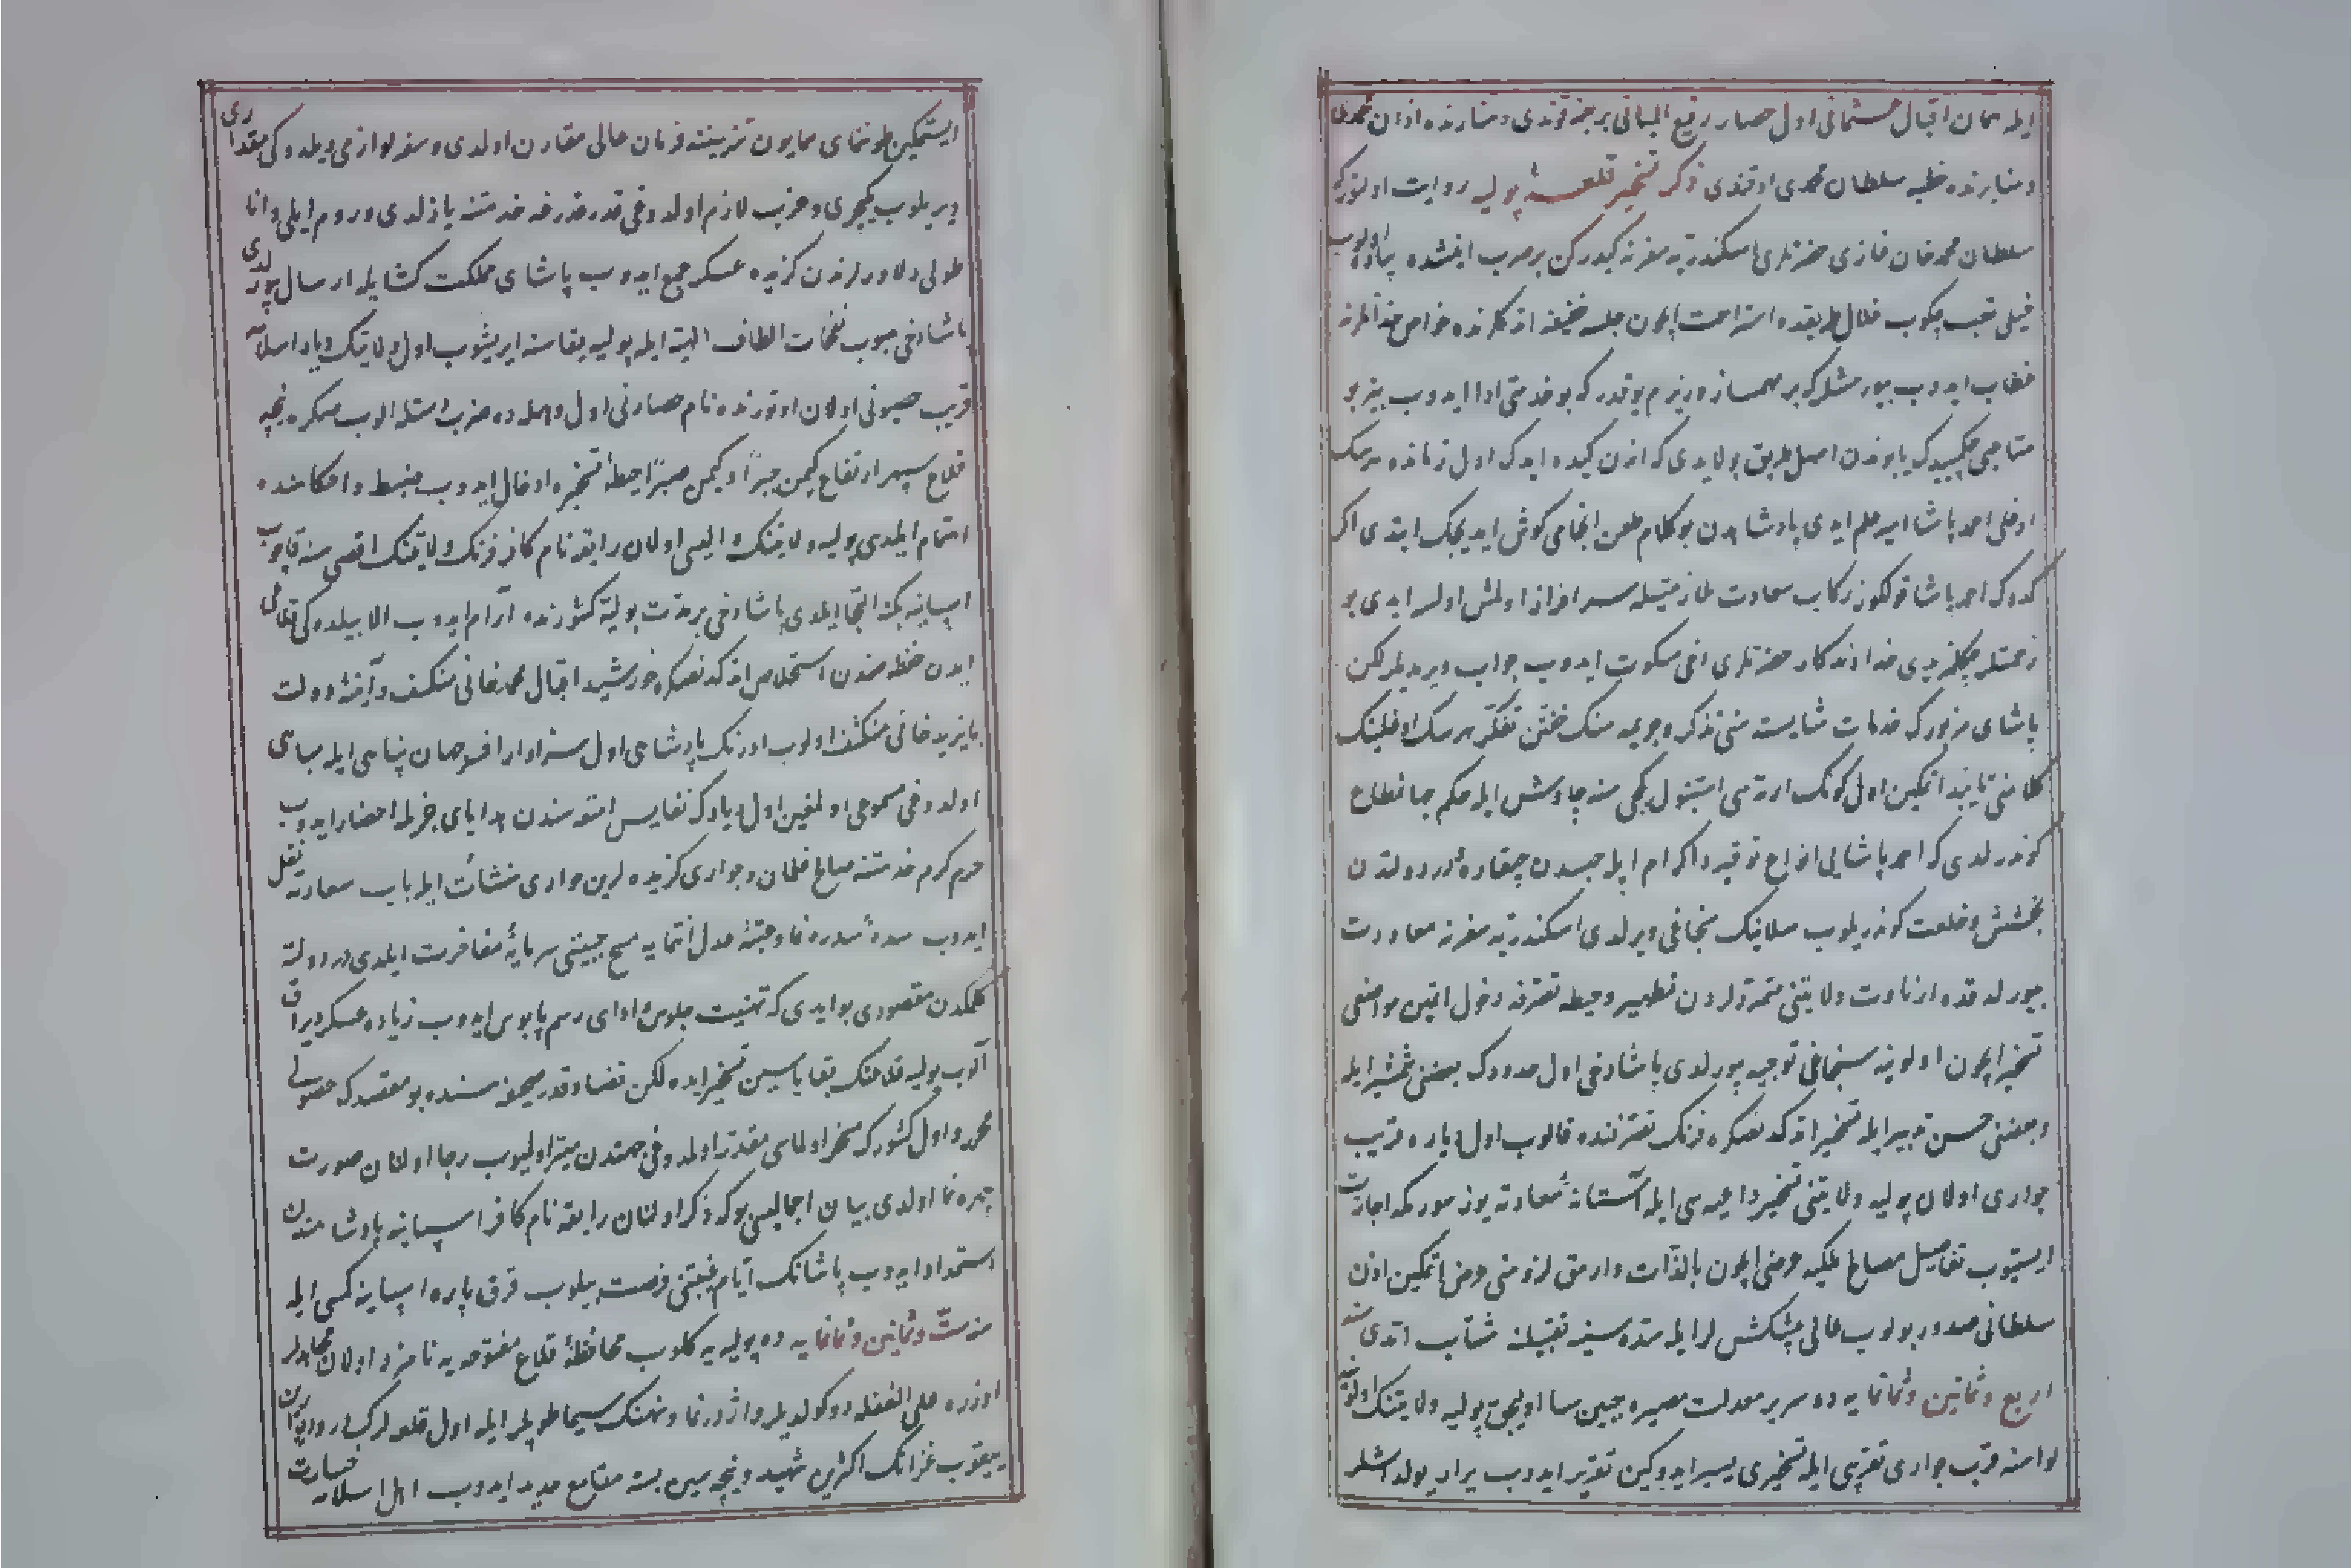 ایله همان اقبال عثمانی اول حصار رفیع البنیانی برجنه قوندی و منارنده اذان محمدی
و منابرنده خطبه سلطان محمدی اوقندی ذکر تسخیر قلعهٔ پولیه روایت اولنور که
سلطان محمد خان غازی حضرتلری اسکندریه سفرنه کیدرکن بر صرب اینشده پیاده اولوب
خیلی تعب چکوب خلال طریقده استراحت ایچون جلسه خفیفه اتدکلرنده خواص خداملرنه
خطاب ایدوب بیورمشلر که بر همساز وزیرم یوقدر که بو خدمتی ادا ایدوب بیز بو
متاعبی چکمییدک یا بوندن اصل طریق بولایدی که اندن کیده ایدک اول زمانده هرسک
اوغلی احمد پاشا امیر علم ایدی پادشاهدن بو کلام طعن انجامی کوش ایدیجک ایتدی اکر
کدوک احمد پاشا قولکوز رکاب سعادت طراز متیله سرافراز اولمش اولسه ایدی بو
زحمتلر چکلمزیدی خداوندکار حضرتلری اخی سکوت ایدوب جواب ویرمدیلر لکن
پاشای مزبورک خدمات شایسته سنی تذکر و جویمه سنک تفکر هرسک اوغلینک
کلامنی تایید اتمکین اول کونک ارته سی استنبول یکجی سنه چاوش ایله حکم جهانمطاع
کوندرلدی که احمد پاشایی انواع توقیر و اکرام ایله حبسدن چیقاره لر در دولتدن
بخشش و خلعت کوندریلوب سلانیک سنجاغی ویرلدی اسکندریه سفرنه معاودت
بیورلدقده ارناوت ولایتنی متمردلردن تطهیر و حیطه تصرفه دخول اتمین مواضعی
تسخیر ایچون اولونیه سنجاغی توجیه بیورلدی پاشا دخی اول حدودک بعضنی شمشیر ایله
و بعضنی حسن تدبیر ایله تسخیر اتدکدنصکره فرنک تصرفنده قالوب اول دیاره قریب
جواری اولان پولیه ولایتنی تسخیر داعیه سی ایله آستانهٔ سعادته یوز سورمکه اجازت
ایستیوب تفاصیل مصالح ملکیه عرضی ایچون بالذات وارمق لزومنی عرض اتمکین اذن
سلطانی صدور بولوب عالی پیشکشلر ایله سده سنیه تقبیلنه شتاب اتدی سنه
اربع وثمانین وثمانمایه ده سریر معدلت مصیره جبین سا اولیجق پولیه ولایتنک اولونیه
لواسنه قرب جواری تقریبی ایله تسخیری یسیر ایدوکین تقریر ایدوب یرار یولداشلر
ایستمکین طوننمای همایون تزیینه فرمان عالی مقارن اولدی و سفر لوازمی دیلدوکی مقداری
ویریلوب یکیچری و عزب لازم اولدوغی قدر قدرغه خدمتنه یازلدی و روم ایلی و انا
طولی دلاورلرندن کزیده عسکر جمع ایدوب پاشای مملکت کشا ایله ارسال بیورلدی
پاشا دخی هبوب نفحات الطاف الهیه ایله پولیه یقاسنه ایریشوب اول ولایتک دیار اسلامه
قریب حصونی اولان اوترنده نام حصارنی اول وهله ده ضرب دستله الوب صکره نیجه
قلاع سپهر ارتفاع کیمن جبراً و کیمن صبراً حیطهٔ تسخیره ادخال ایدوب ضبط و احکامنده
اهتمام ایلدی پولیه ولایتنک والیسی اولان رایقه نام کافر فرنک ولایتنک اقصی سنه قاچوب
اسپانیه یه التجا ایلدی پاشا دخی بر مدت پولیه کشورنده آرام ایدوب الا بیلدوکی قلاعی
ایدن حفظه سندن استخلاص اتدکدنصکره خورشید اقبال محمدخانی منکسف و آینهٔ دولت
بایزیدخانی منکشف اولوب اورنک پادشاهی اول سزاوار افسر جهان پناهی ایله مباهی
اولدوغی مسموعی اولمغین اول دیارک نفایس امتعه سندن هدایای جزیله احضار ایدوب
حرم کرم خدمتنه صالح غلمان و جواری کزیده لرین جواری منشأت ایله باب سعادته نقل
ایدوب سدهٔ سدره نما و عتبهٔ عدل انتمایه مسح جبینی سرمایهٔ مفاخرت ایلدی در دولته
کلمکدن مقصودی بو ایدی که تهنیت جلوس و ادای رسم پابوس ایدوب زیاده عسکر و یراق
آلوب پولیه قلاعنک بقایاسین تسخیر ایده لکن قضا و قدر صحیفه سنده بو مقصدک حصولی
محرر و اول کشورک مسخر اولماسی مقدر اولمدوغی جهتدن میسر اولمیوب رجا اولنان صورت
چهره نما اولمدی بیان اجمالیسی بو که ذکر اولنان رایقه نام کافر اسپانیه پادشاهندن
استمداد ایدوب پاشانک ایام غیبتنی فرصت بیلوب قرق پاره اسپانیه کمسی ایله
سنه ست وثمانین وثمانمایه ده پولیه یه کلوب محافظهٔ قلاع مفتوحه یه نامزد اولان مجاهدلر
اوزره علی الغفله دوکولدیلر و اژدرنما و نهنک سیما طوپلر ایله اول قلعه لرک
ییقوب غزاتک اکثرین شهید و نیجه سین بسته مقامع حدید ایدوب اهل اسلامه خسارت